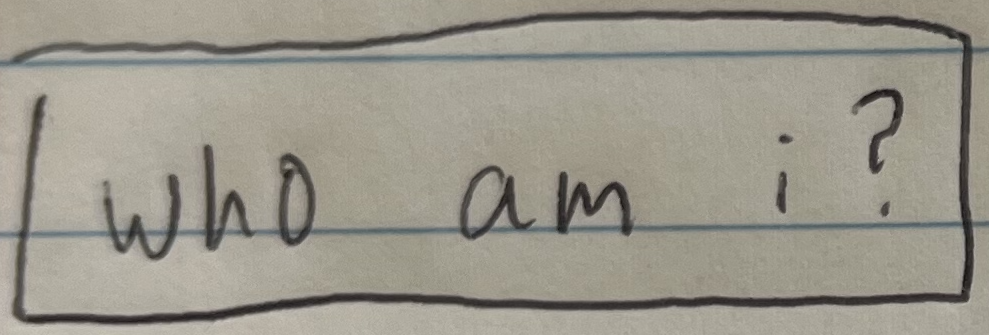 who am i?